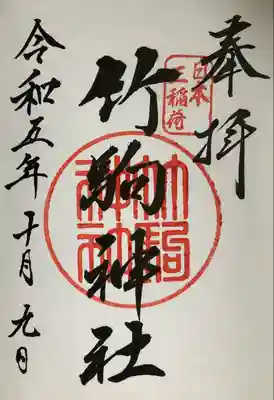 奉拝
日本三稲荷
竹駒神社
竹駒神社
令和五年十月九日